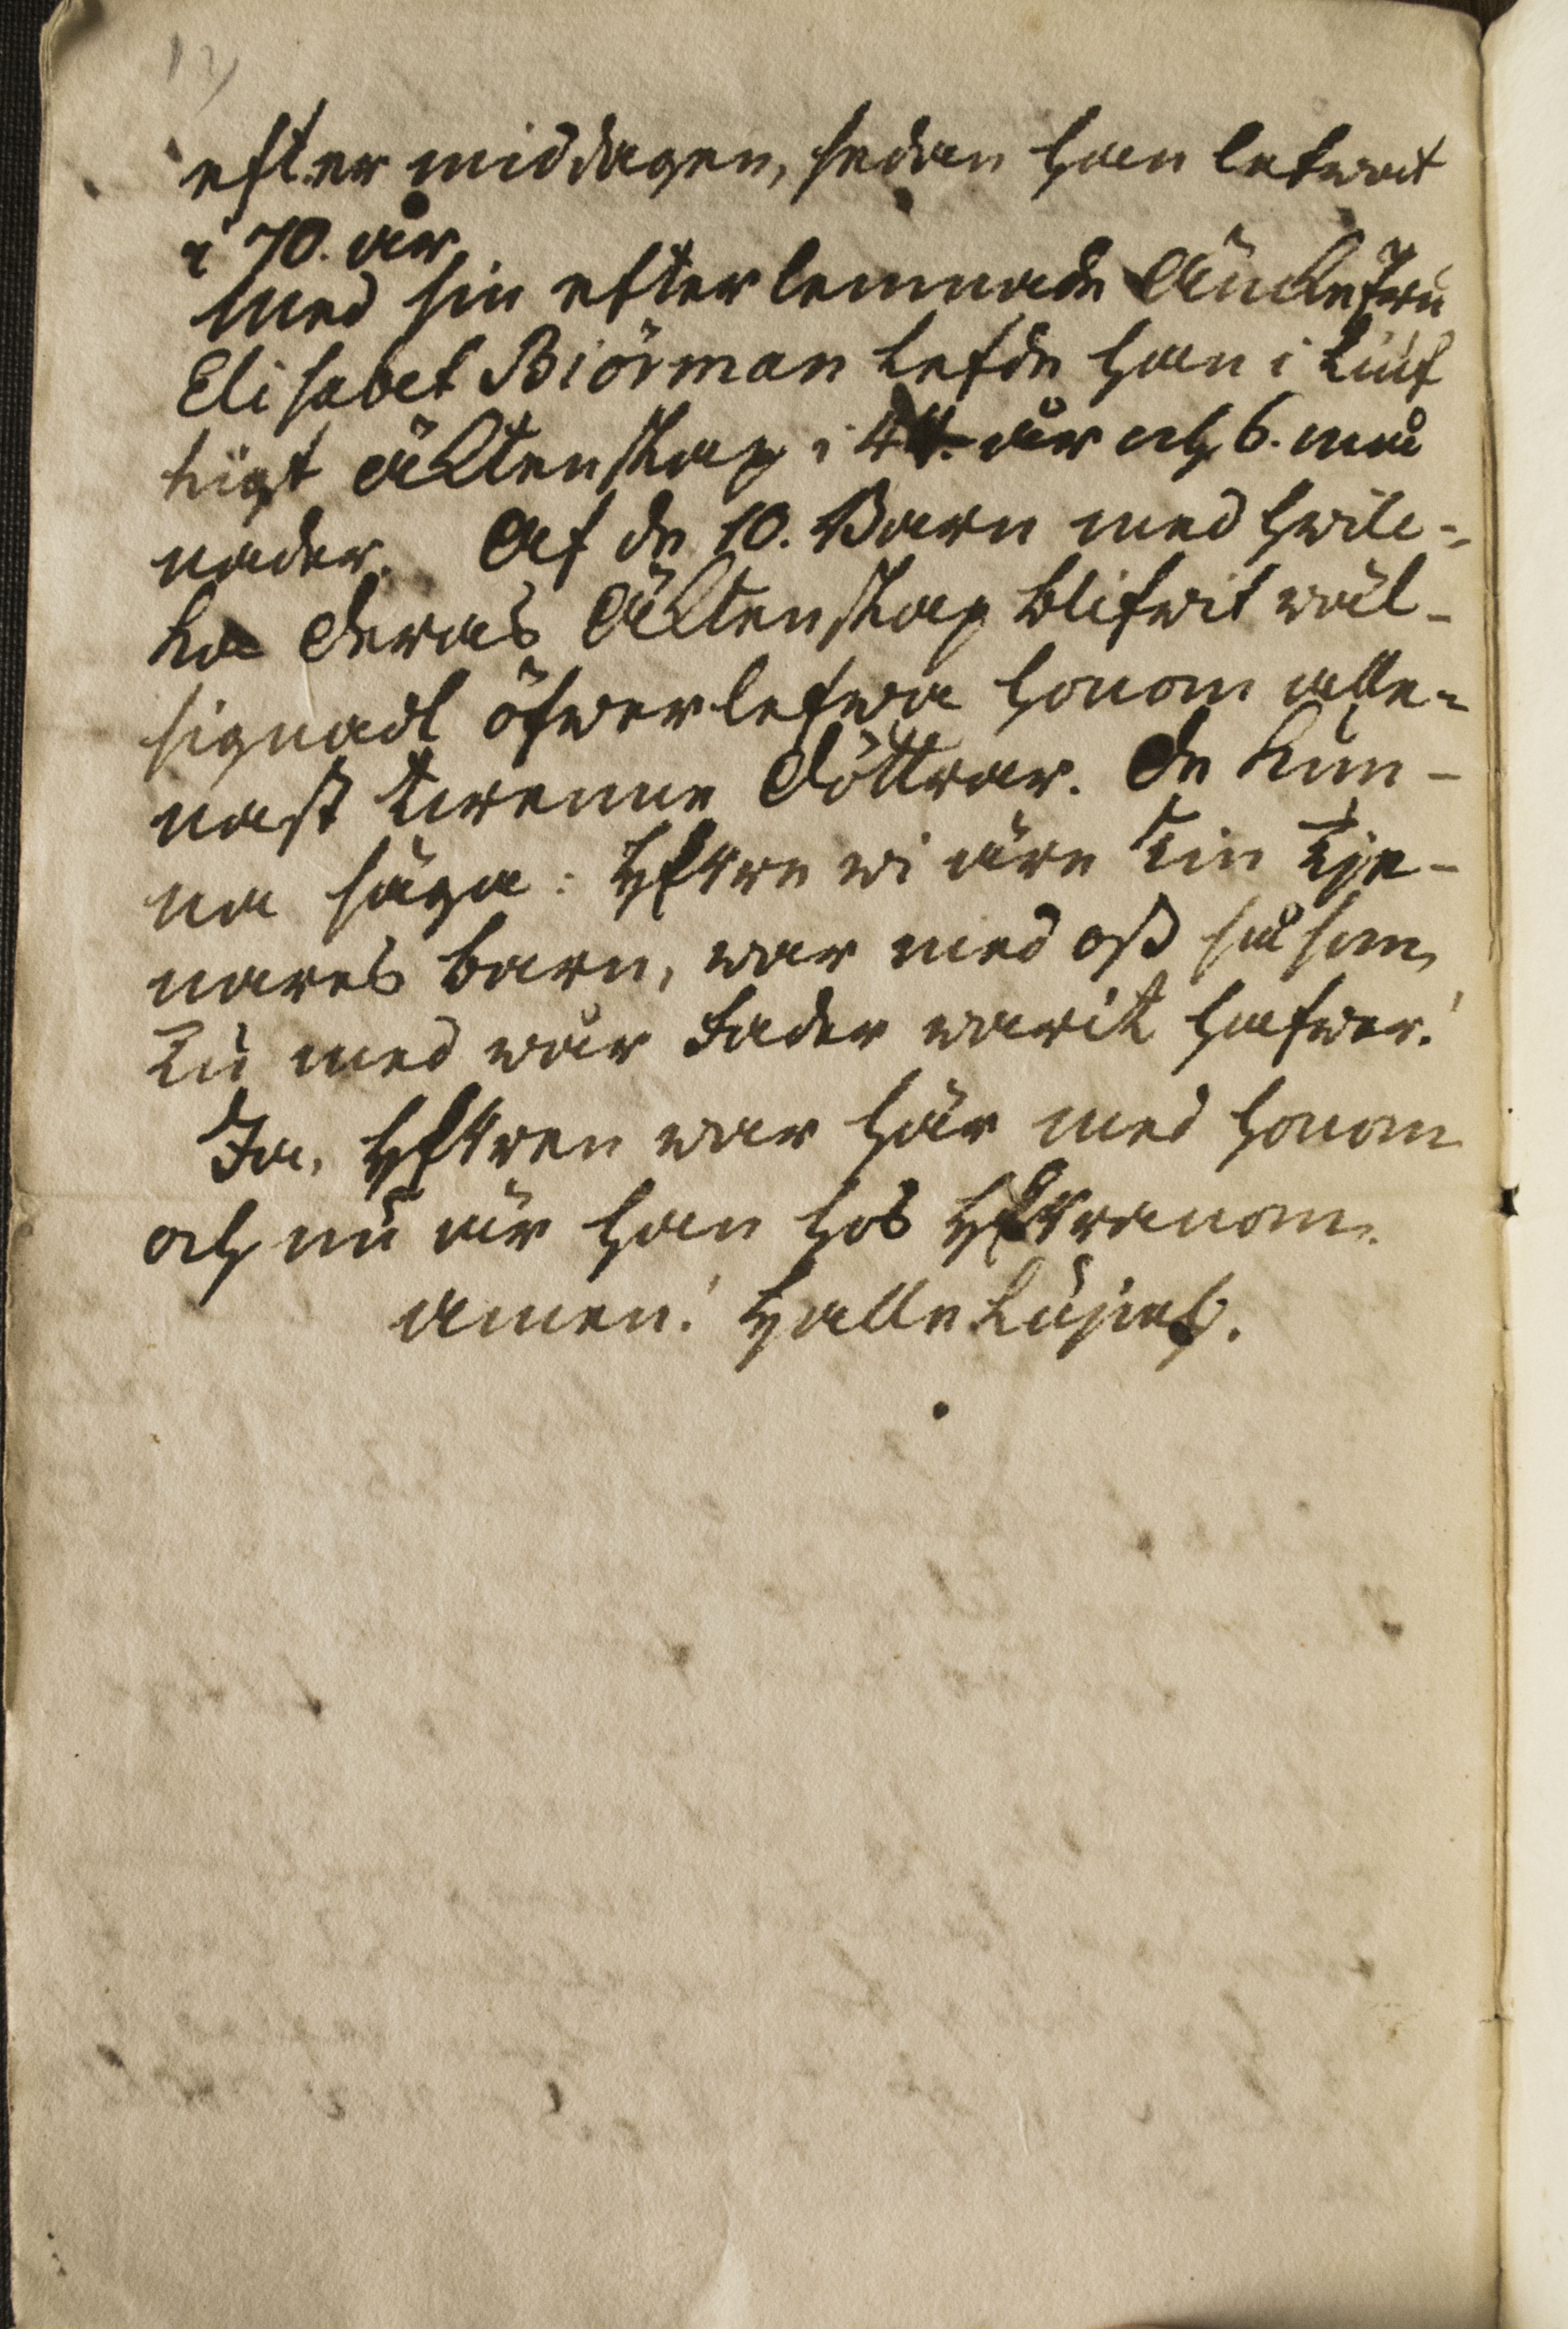 12)
efter middagen, sedan han lefwat
i 70. år.
Med sin efterlemnade Änckefru
Elisabet Biörman lefde han i liuf
ligt ächtenskap i 44. år och 6. må
nader. Af de 10. Barn med hwil-
ka deras Ächtenskap blifwit wäl-
signadt öfwerlefwa honom alle-
nast twenne döttrar. De kun-
na säga: HErre wi äre tin tje-
nares barn, war med oss så som
tu med wår Fader warit hafwer!
Ja, HErren war här med honom
och nu är han hos HErranom.
Amen! Hallelujah.